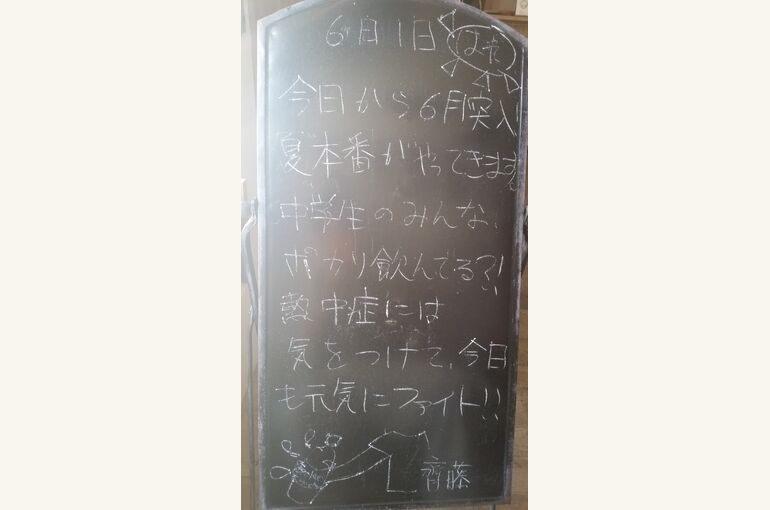 6月1日
今日から6月突入
夏本番がやってきます。
中学生のみんな、
ポカリ飲んでる?!
熱中症には
気をつけて、今日
も元気にファイト!!
齊藤